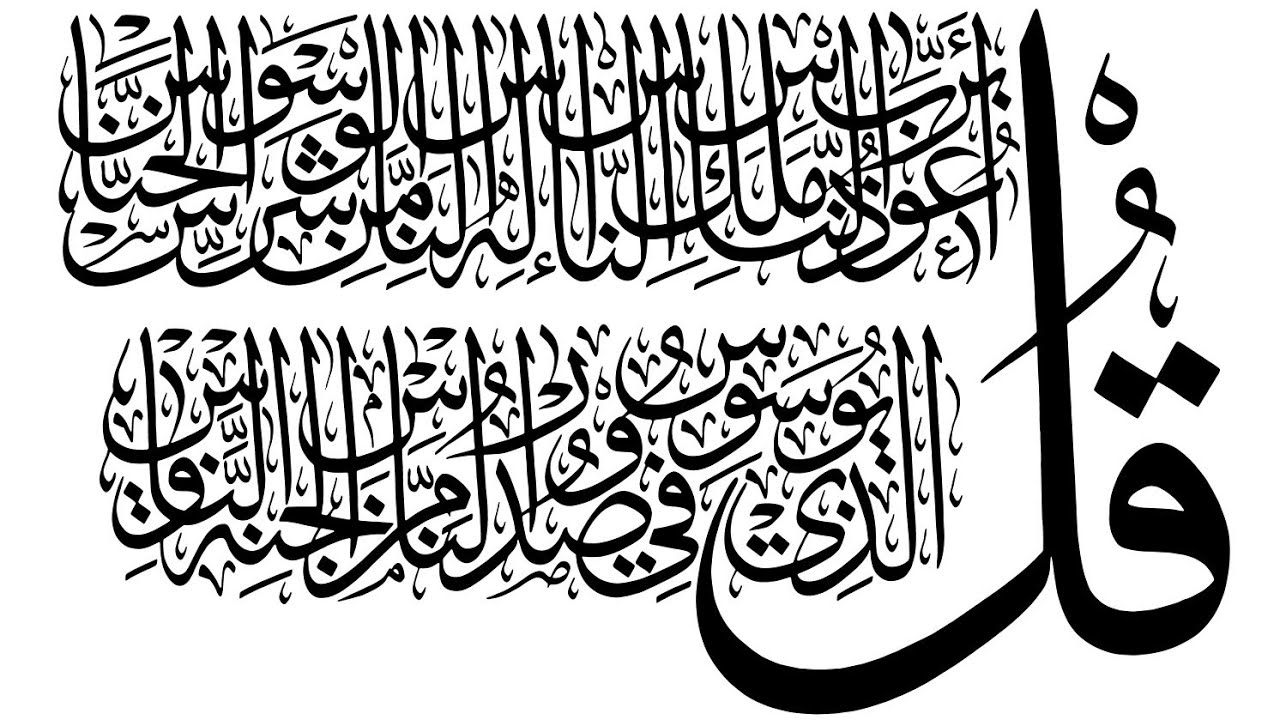 قُلْ
أَعُوذُ بِرَبِّ النَّاسِ مَلِكِ النَّاسِ إِلَهِ النَّاسِ مِنْ شَرِّ الْوَسْوَاسِ الْخَنَّاسِ
الَّذِي يُوَسْوِسُ فِي صُدُورِ النَّاسِ مِنَ الْجِنَّةِ وَالنَّاسِ